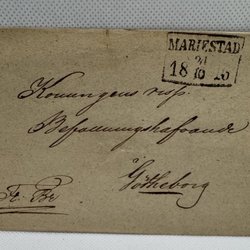 MARIESTAD
18
Konungens resp.
Befallningshafvande
Götheborg
Fr. Br.